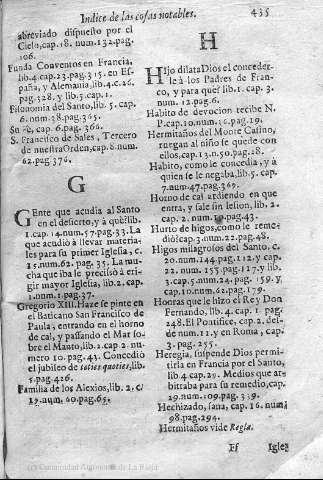 Indice de las cosas notables. 435
abreviado dispuesto por el
Cielo, cap. 18. num. 132. pag.
106.
Funda Conventos en Francia,
lib. 4. cap. 23. pag. 315. en Es-
paña, y Alemania, lib. 4. c. 26.
pag. 328. y lib. 5. cap. 1.
Fisonomia del Santo, lib. 5. cap.
6. num. 28. pag. 365.
cap. 6. pag. 366.
S. Francisco de Sales, Tercero
de nuestra Orden, cap. 8. num.
62. pag. 376.
G
GEnte que acudia al Santo
en el desierto, y à què? lib.
1. cap. 14. num. 57. pag. 33. La
que acudiò à llevar materia-
les para su primer Iglesia, c.
15. num. 62. pag. 35. La mu-
cha que iba le precisò à eri-
gir mayor Iglesia, lib. 2. cap.
1. num. 1. pag. 37.
Gregorio XIII. Hace se pinte en
el Baticano San Francisco de
Paula, entrando en el horno
de cal, y passando el Mar so-
bre el Manto, lib. 1. cap. 2. nu-
mero 10. pag. 43. Concediò
el jubileo de toties quoties, lib.
5. pag. 426.
Familia de los Alexios, lib. 2. c/
num. 60. pag. 65.
H
HIjo dilata Dios el conceder-
le à los Padres de Fran-
co, y para què? lib. 1. cap. 3.
num. 12. pag. 6.
Habito de devocion recibe N.
P. cap. 10. num. 16. pag. 19.
Hermitaños del Monte Casino,
ruegan al niño se quede con
ellos, cap. 13. n. 50. pag. 18.
Habito, como le concedia, y à
quien se le negaba, lib. 5. cap.
7. num. 47. pag. 369.
Horno de cal ardiendo en que
entra, y sale sin lesion, lib. 2.
cap. 2. num. pag. 43.
Hurto de higos, como le reme-
diò? cap. 3. num. 22. pag. 48.
Higos milagrosos del Santo, c.
20. num. 144. pag. 112. y cap.
22. num. 155. pag. 117. y lib.
3. cap. 5. num. 24. pag. 159. y
cap. 10. num. 62. pag. 179.
Honras que le hizo el Rey Don
Fernando, lib. 4. cap. 1. pag.
248. El Pontifice, cap. 2. des-
de num. 11. y en Roma, cap.
3. pag. 255.
Heregia, suspende Dios permi-
tirla en Francia por el Santo,
lib. 4. cap. 29. Medios que ar-
bitraba para su remedio, cap.
29. num. 109. pag. 339.
Hechizado, sana, cap. 16. num.
98. pag. 294.
Hermitaños vide Regla.
Ff Igles
(c) Comunidad Autónoma de La Rioja